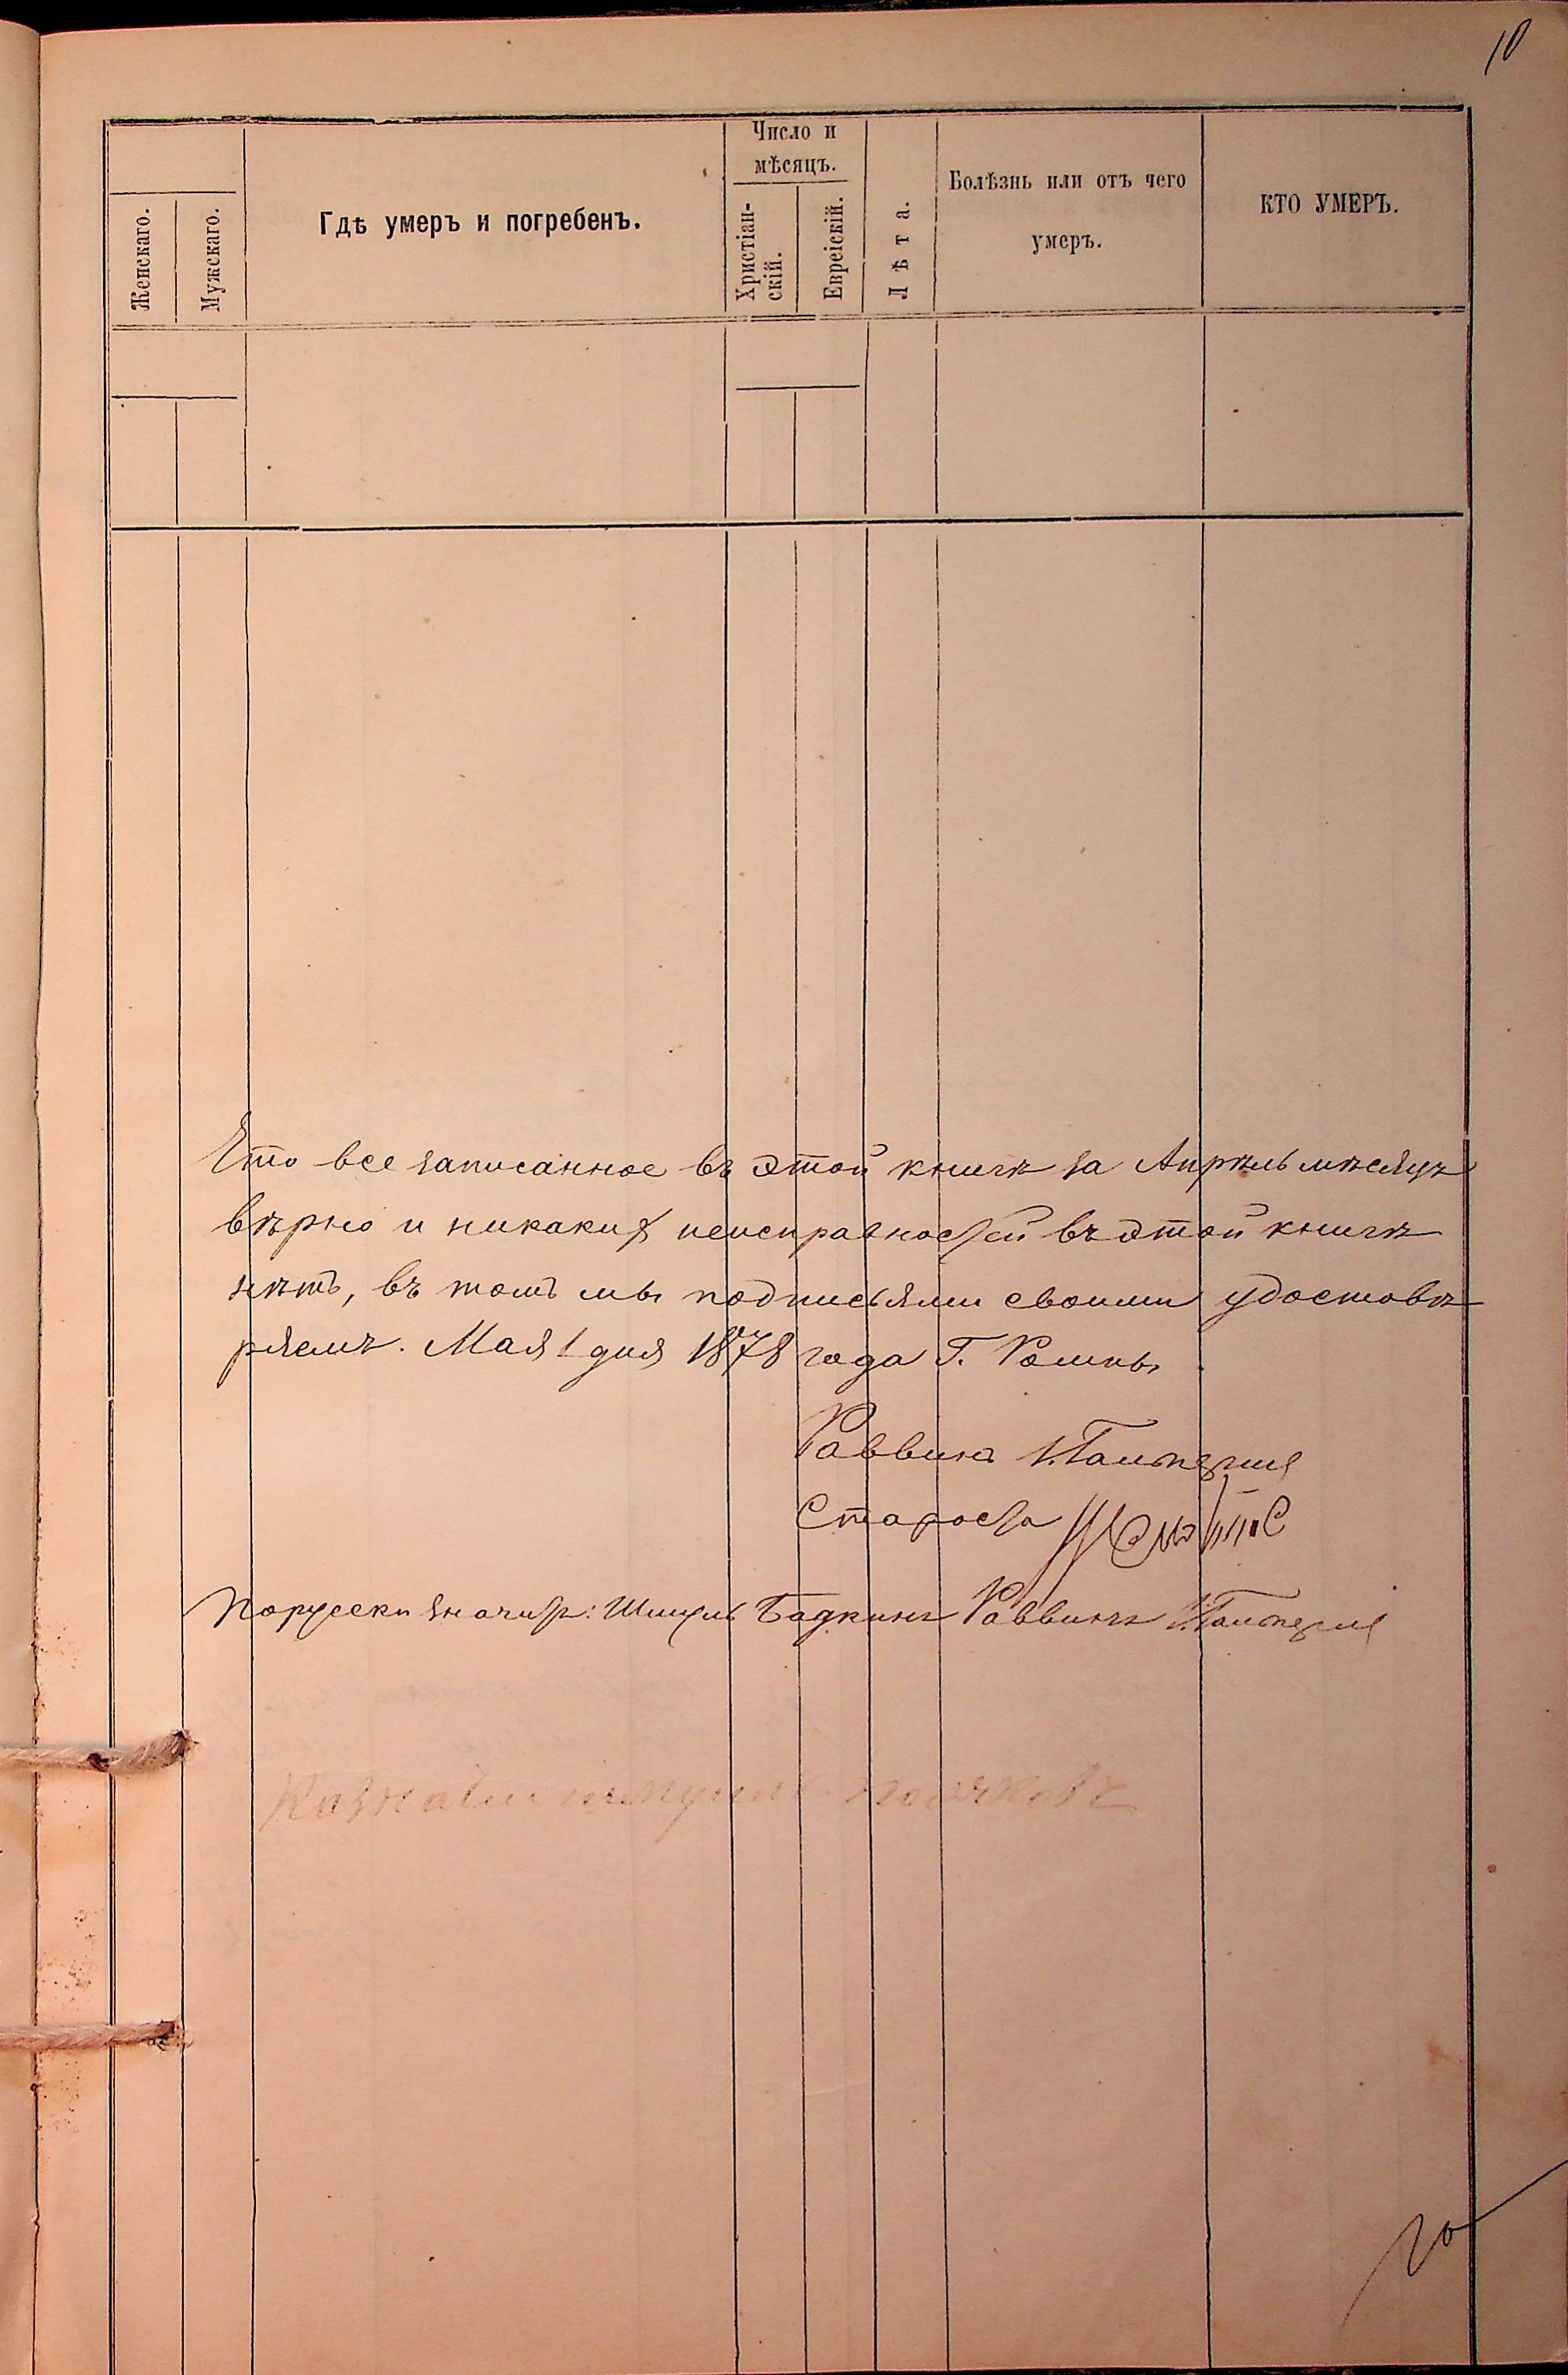 10
Женскаго.
Мужскаго.
Гдѣ умеръ и погребенъ.
Число и
мѣсяцъ.
Христіан-
скій.
Евреіскій.
Лѣта.
Болѣзнь или отъ чего
умеръ.
КТО УМЕРЪ.
Что все записанное въ этой книгѣ за Апрѣль мѣсяцъ
вѣрно и никакихъ неисправностей въ этой книгѣ
нѣтъ, въ томъ мы подписями своими удостовѣ
ряемъ. Мая 1 дня 1878 года Г. Ромны
Раввинъ
Староста
Порусски значитъ: Бадкинъ Раввинъ